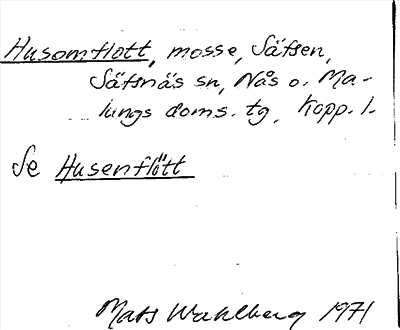 Husomflott, mosse, Säfsen,
Säfsnäs sn, Nås o. Ma-
lungs doms. tg, Kopp. l.
Se Husenflött
Mats Wahlberg 1971